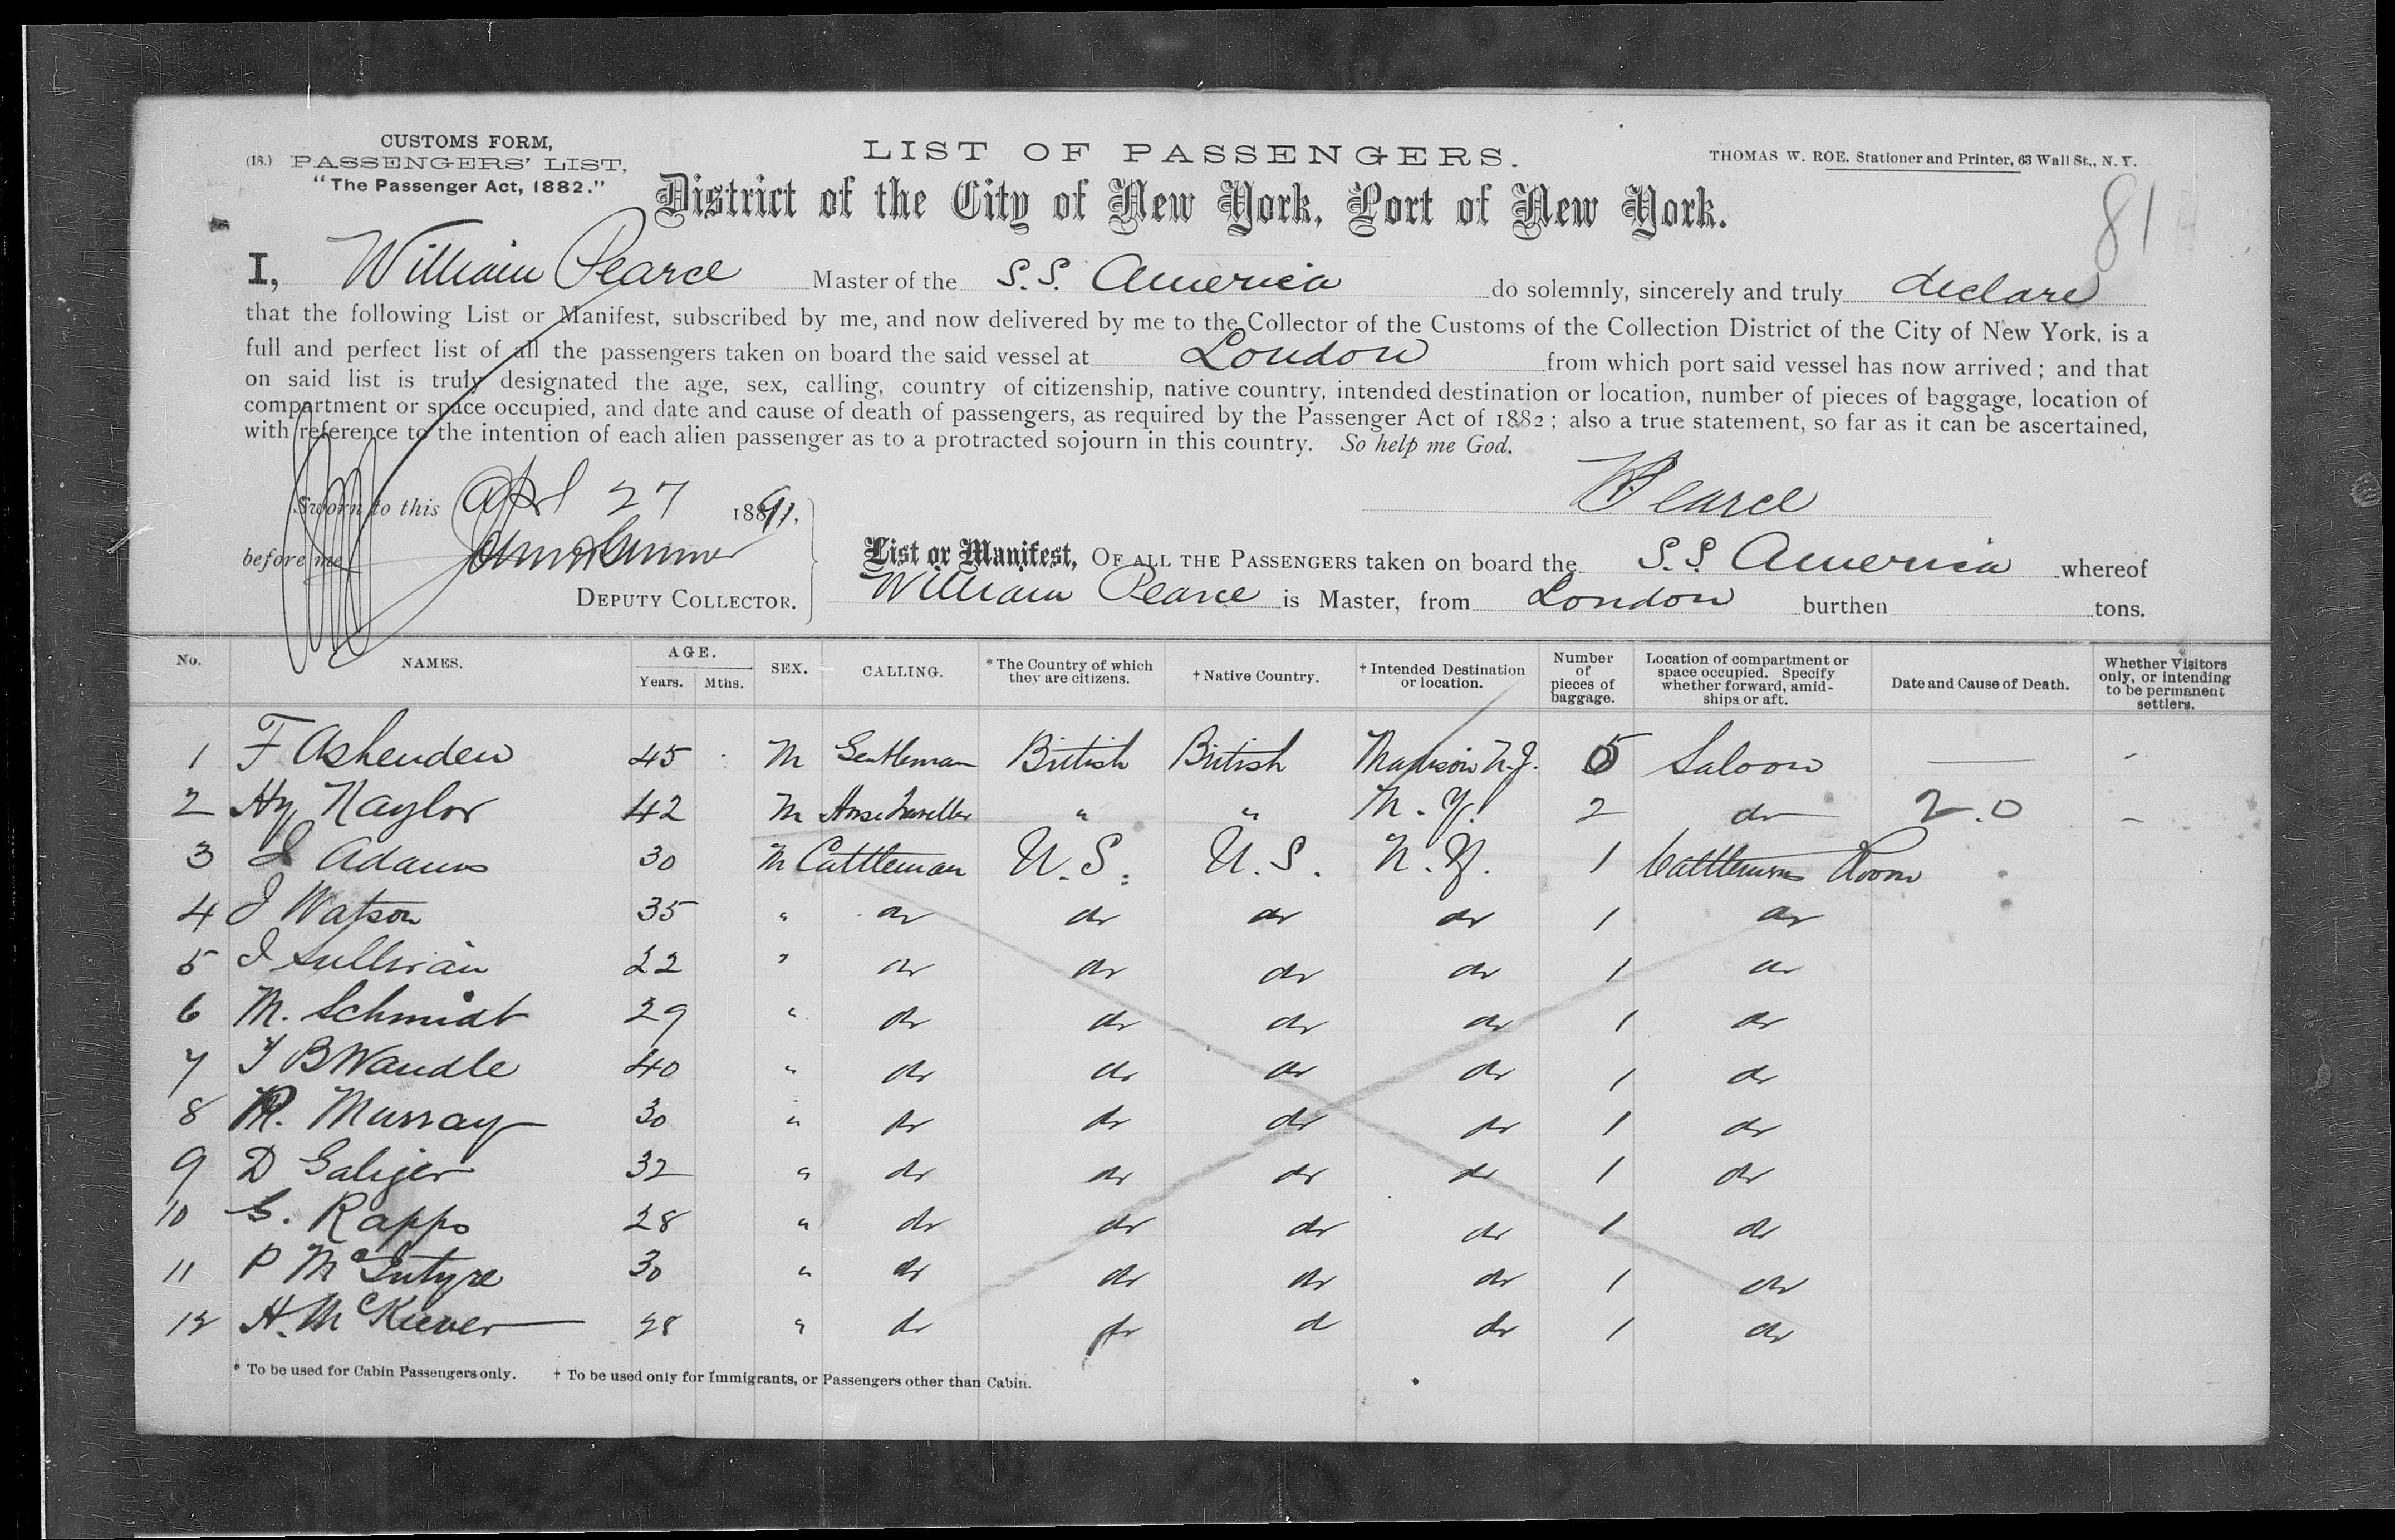 CUSTOMS FORM,
(18.) PASSENGERS' LIST,
"The Passenger Act, 1882."
LIST OF PASSENGERS.
THOMAS W. ROE. Stationer and Printer, 63 Wall St., N. Y.
District of the City of New York, Port of New York.
81
I, William Pearce Master of the S.S. America do solemnly, sincerely and truly declare
that the following List or Manifest, subscribed by me, and now delivered by me to the Collector of the Customs of the Collection District of the City of New York, is a
full and perfect list of all the passengers taken on board the said vessel at London from which port said vessel has now arrived; and that
on said list is truly designated the age, sex, calling, country of citizenship, native country, intended destination or location, number of pieces of baggage, location of
compartment or space occupied, and date and cause of death of passengers, as required by the Passenger Act of 1882; also a true statement, so far as it can be ascertained,
with reference to the intention of each alien passenger as to a protracted sojourn in this country. So help me God.
Sworn to this Apl 27 1891.
W Pearce
before me
DEPUTY COLLECTOR.
List or Manifest, OF ALL THE PASSENGERS taken on board the S.S. America whereof
William Pearce is Master, from London burthen tons.
No. NAMES. AGE. Years. Mths. SEX. CALLING. * The Country of which they are citizens. † Native Country. † Intended Destination or location. Number of pieces of baggage. Location of compartment or space occupied. Specify whether forward, amidships or aft. Date and Cause of Death. Whether Visitors only, or intending to be permanent settlers.
1 F Ashenden 45 M Gentleman British British Madison N.J. 5 Saloon — -
2 Hy Naylor 42 M " " N.Y. 2 do 2.0 -
3 J Adams 30 M Cattleman U.S. U.S. N.Y. 1 Cattlemens Room
4 J Watson 35 " do do do do 1 do
5 J Sullivan 22 " do do do do 1 do
6 M. Schmidt 29 " do do do do 1 do
7 T B Wandle 40 " do do do do 1 do
8 R. Murray 30 " do do do do 1 do
9 D Saliger 32 " do do do do 1 do
10 G. Rapps 28 " do do do do 1 do
11 P McIntyre 30 " do do do do 1 do
12 H. McKeever 28 " do do do do 1 do
* To be used for Cabin Passengers only. † To be used only for Immigrants, or Passengers other than Cabin.